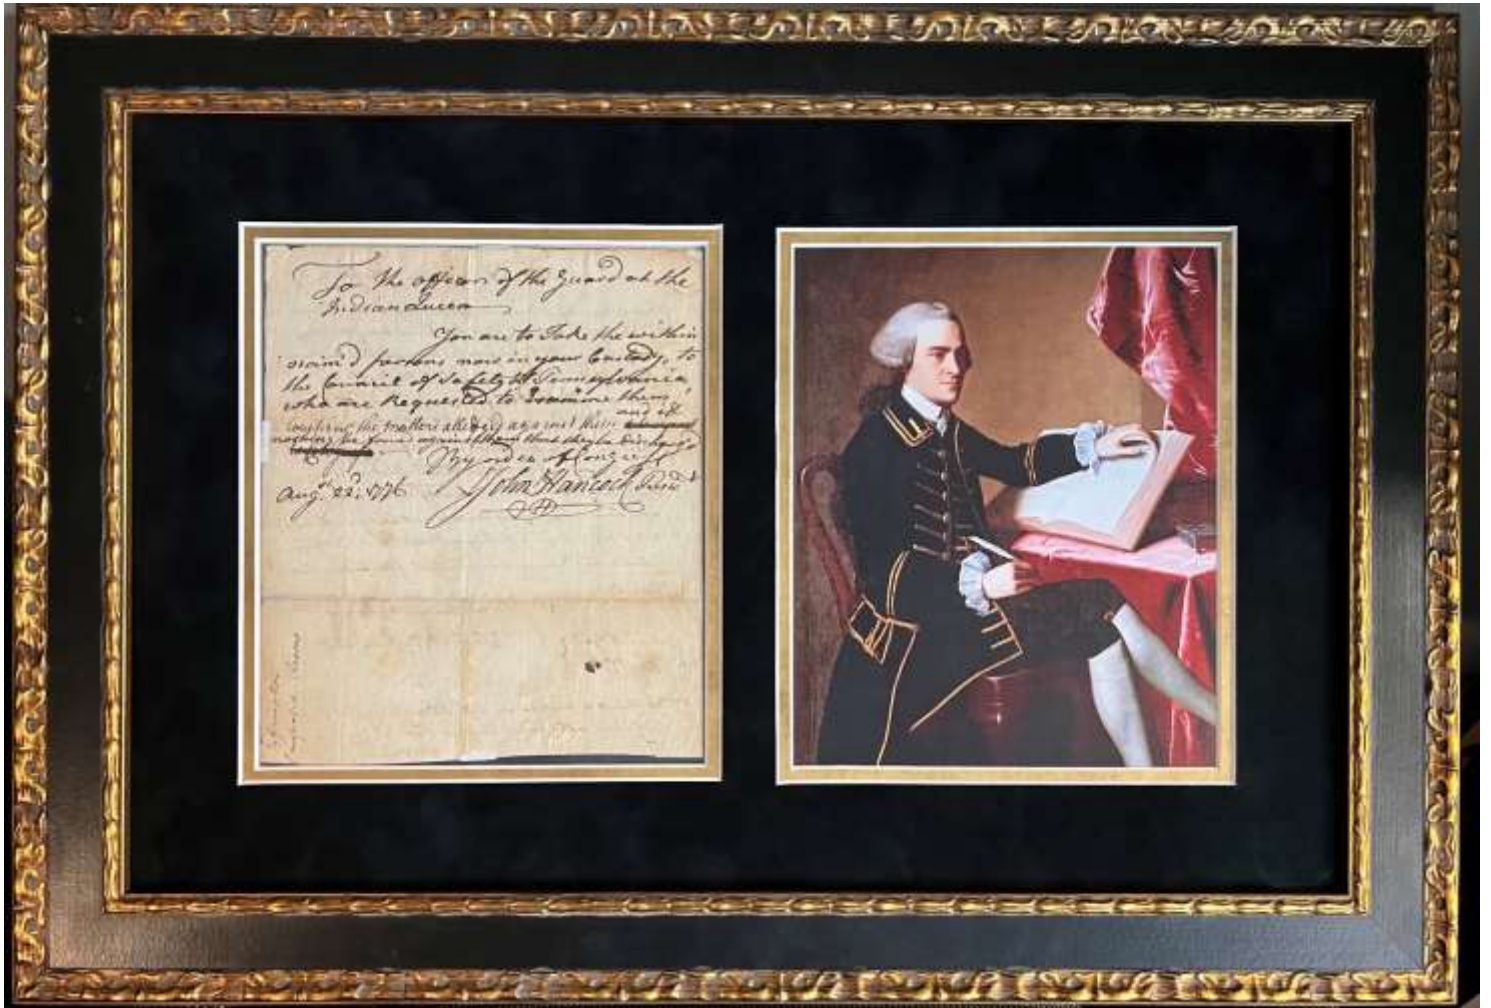 To the officer of the Guard at the
Indian Queen
You are to Take the within
nam'd persons now in your Custody, to
the Council of Safety of Pennsylvania,
who are Requested to Examine them,
and if
concerning the matters alledged against them
nothing be found against them that they be discharg'd
By order of Congress
Augt. 22d. 1776 John Hancock Presidt